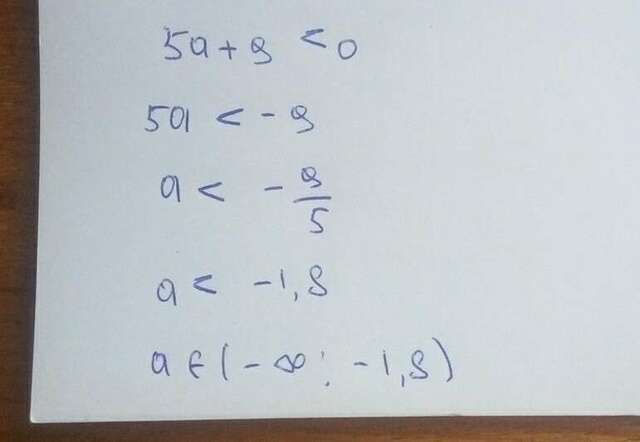 5a + 9 < 0
5a < - 9
a < - 9/5
a < -1,8
a ∈ (-∞; -1,8)